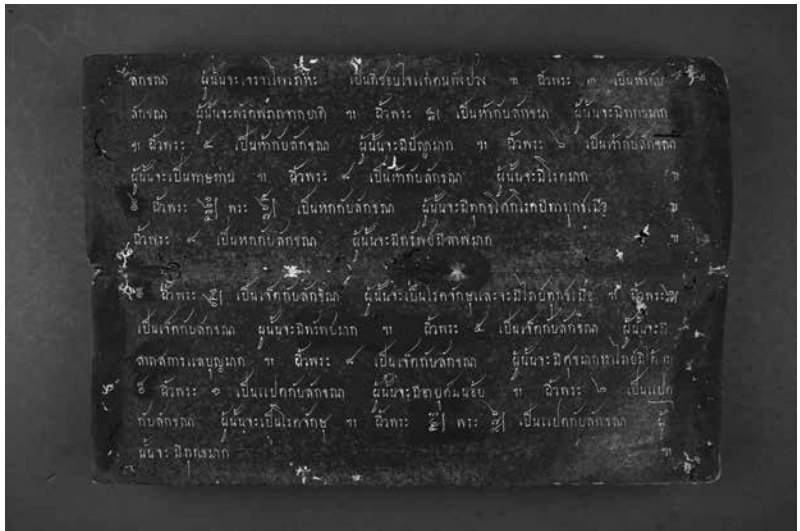 ลักขณา ผู้นั้นจะเจรจาไพเภาะ เป็นที่ชอบใจแก่คนทังปวง ฯ ถ้าพระ ๓ เป็นห้ากับ
ลักขณา ผู้นั้นจะพลัดพลากจากยาติ ฯ ถ้าพระ เป็นห้ากับลักขณา ผู้นั้นจะมี
ฯ ถ้าพระ ๕ เป็นห้ากับลักขณา ผู้นั้นจะมีปัญามาก ฯ ถ้าพระ ๖ เป็นห้ากับลักขณา
ผู้นั้นจะเป็นทาษท่าน ฯ ถ้าพระ ๘ เป็นห้ากับลักขณา ผู้นั้นจะมีโรคมาก ฯ
ถ้าพระ พระ เป็นหกกับลักขณา ผู้นั้นจะมีทุกขโศกโรคปาทุกข์เมื่อ ฯ
ถ้าพระ ๘ เป็นหกกับลักขณา ผู้นั้นจะมีทรัพย์มีลาพมาก ฯ
ถ้าพระ เป็นเจ็ดกับลักขณา ผู้นั้นจะเป็นโรคจักษุและจะมีไภยทุกข์เมื่อ ฯ ถ้าพระ
เป็นเจ็ดกับลักขณา ผู้นั้นจะมีทรัพย์มาก ฯ ถ้าพระ ๕ เป็นเจ็ดกับลักขณา ผู้นั้นจะมี
แลบุญมาก ฯ ถ้าพระ ๘ เป็นเจ็ดกับลักขณา ผู้นั้นจะมี
ถ้าพระ ๑ เป็นแปดกับลักขณา ผู้นั้นจะมีอายุศม์น้อย ฯ ถ้าพระ ๒ เป็นแปด
กับลักขณา ผู้นั้นจะเป็นโรคจักษุ ฯ ถ้าพระ พระ เป็นแปดกับลักขณา ผู้
นั้นจะมีทุกขมาก ฯ